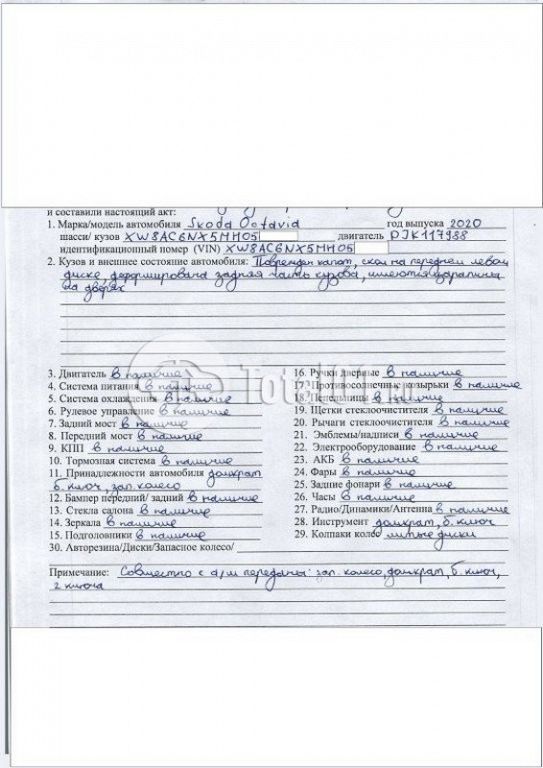 и составили настоящий акт:
1. Марка/модель автомобиля Skoda Octavia год выпуска 2020
шасси/ кузов XW8AC6NX5MH05 двигатель DJK117988
идентификационный номер (VIN) XW8AC6NX5MH05
2. Кузов и внешнее состояние автомобиля: Поврежден капот, скол на переднем левом
диске, деформирована задняя часть кузова, имеются царапины
на дверях
3. Двигатель в наличие
4. Система питания в наличие
5. Система охлаждения в наличие
6. Рулевое управление в наличие
7. Задний мост в наличие
8. Передний мост в наличие
9. КПП в наличие
10. Тормозная система в наличие
11. Принадлежности автомобиля домкрат
б. ключ, зап. колесо
12. Бампер передний/ задний в наличие
13. Стекла салона в наличие
14. Зеркала в наличие
15. Подголовники в наличие
30. Авторезина/Диски/Запасное колесо/
16. Ручки дверные в наличие
17. Противосолнечные козырьки в наличие
18. Пепельницы в наличие
19. Щетки стеклоочистителя в наличие
20. Рычаги стеклоочистителя в наличие
21. Эмблемы/надписи в наличие
22. Электрооборудование в наличие
23. АКБ в наличие
24. Фары в наличие
25. Задние фонари в наличие
26. Часы в наличие
27. Радио/Динамики/Антенна в наличие
28. Инструмент домкрат, б. ключ
29. Колпаки колес литые диски
Примечание: Совместно с а/м переданы: зап. колесо, домкрат, б. ключ,
2 ключа